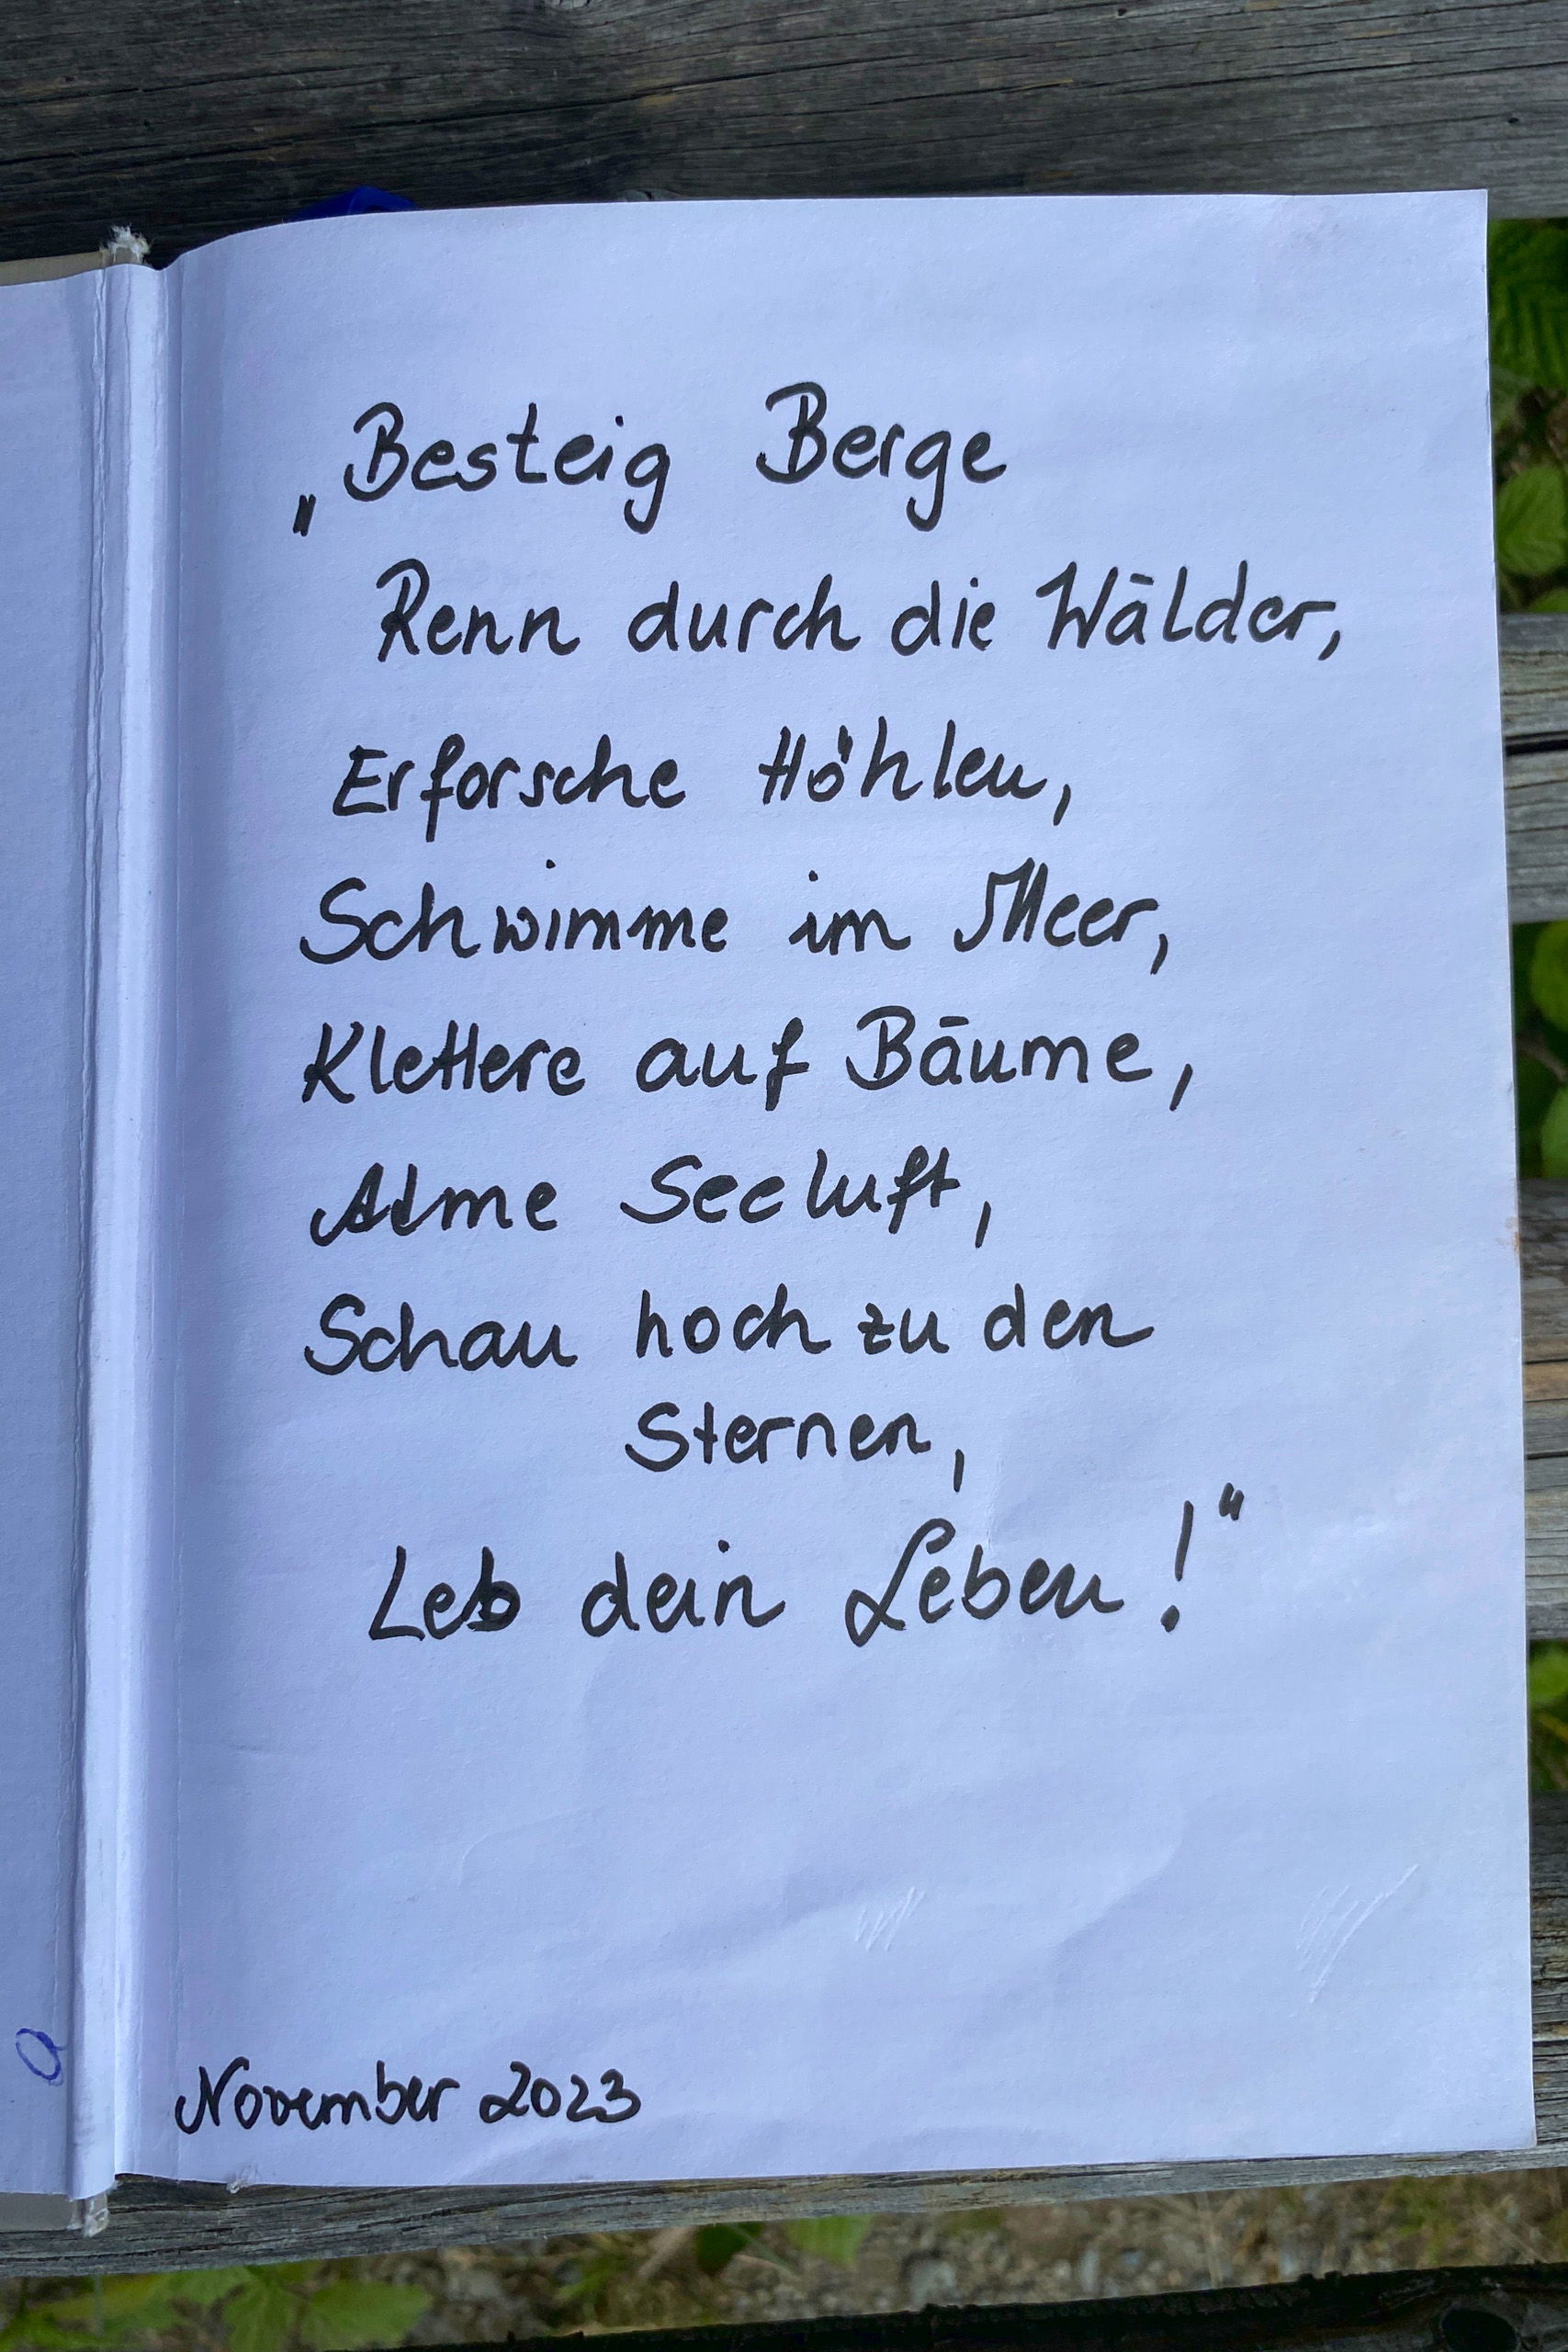 „Besteig Berge
Renn durch die Wälder,
Erforsche Höhlen,
Schwimme im Meer,
Klettere auf Bäume,
Atme Seeluft,
Schau hoch zu den
Sternen,
Leb dein Leben!"
November 2023